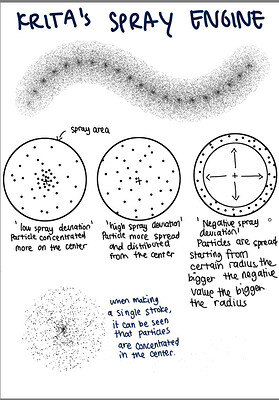 KRITA'S SPRAY ENGINE
spray area
'low spray deviation'
Particle concentrated
more on the center
'high spray deviation'
Particle more spread
and distributed
from the center
'Negative spray
deviation'
Particles are spread
starting from
certain radius, the
bigger the negative
value the bigger
the radius
when making
a single stroke,
it can be seen
that particles
are concentrated
in the center.